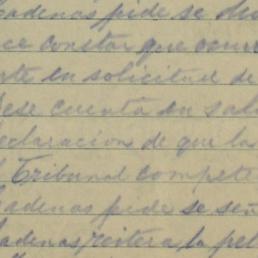 Cadenas pide se
ce constar que
te en solicitud de
Dese cuenta en
eclaracion de que la
Tribunal compete
adenas pide se señ
adenas reitera la pet